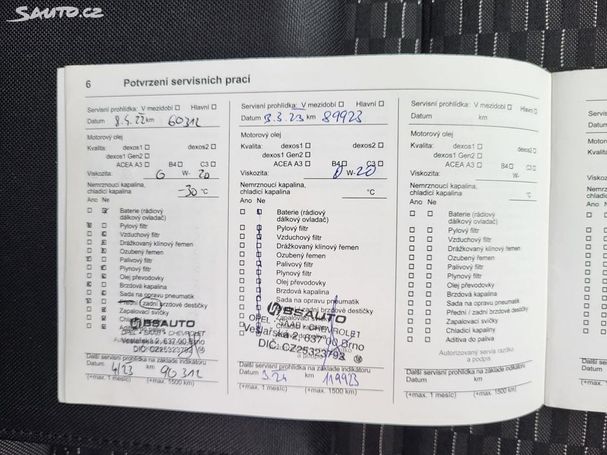 Sauto.cz
6 Potvrzení servisních prací
Servisní prohlídka: V mezidobí Hlavní
Datum 8.4.22 km 60312
Motorový olej
Kvalita: dexos1 dexos2
dexos1 Gen2
ACEA A3 B4 C3
Viskozita: 0 W- 20
Nemrznoucí kapalina,
chladicí kapalina -30 °C
Ano Ne
Baterie (rádiový
dálkový ovladač)
Pylový filtr
Vzduchový filtr
Drážkovaný klínový řemen
Ozubený řemen
Palivový filtr
Plynový filtr
Olej převodovky
Brzdová kapalina
Sada na opravu pneumatik
zadní brzdové destičky
Zapalovací svíčky
BSAUTO
OPEL
Vestařská 2, 637 00 Brno
DIČ: CZ25323792
Další servisní prohlídka na základě indikátoru
Datum 4/23 km 90312
(+max. 1 měsíc) (+max. 1500 km)
Servisní prohlídka: V mezidobí Hlavní
Datum 3.3.23 km 89923
Motorový olej
Kvalita: dexos1 dexos2
dexos1 Gen2
ACEA A3 B4 C3
Viskozita: 0 W-20
Nemrznoucí kapalina,
chladicí kapalina °C
Ano Ne
Baterie (rádiový
dálkový ovladač)
Pylový filtr
Vzduchový filtr
Drážkovaný klínový řemen
Ozubený řemen
Palivový filtr
Plynový filtr
Olej převodovky
Brzdová kapalina
Sada na opravu pneumatik
zadní brzdové destičky
BSAUTO
OPEL SAAB CHEVROLET
Vestařská 2, 637 00 Brno
DIČ: CZ25323792
a podpis
Další servisní prohlídka na základě indikátoru
Datum 3.24 km 119923
(+max. 1 měsíc) (+max. 1500 km)
Servisní prohlídka: V mezidobí Hlavní
Datum km
Motorový olej
Kvalita: dexos1 dexos2
dexos1 Gen2
ACEA A3 B4 C3
Viskozita: W-
Nemrznoucí kapalina,
chladicí kapalina °C
Ano Ne
Baterie (rádiový
dálkový ovladač)
Pylový filtr
Vzduchový filtr
Drážkovaný klínový řemen
Ozubený řemen
Palivový filtr
Plynový filtr
Olej převodovky
Brzdová kapalina
Sada na opravu pneumatik
Přední / zadní brzdové destičky
Zapalovací svíčky
Chladicí kapaliny
Aditiva do paliva
Autorizovaný servis razítko
a podpis
Další servisní prohlídka na základě indikátoru
Datum km
(+max. 1 měsíc) (+max. 1500 km)